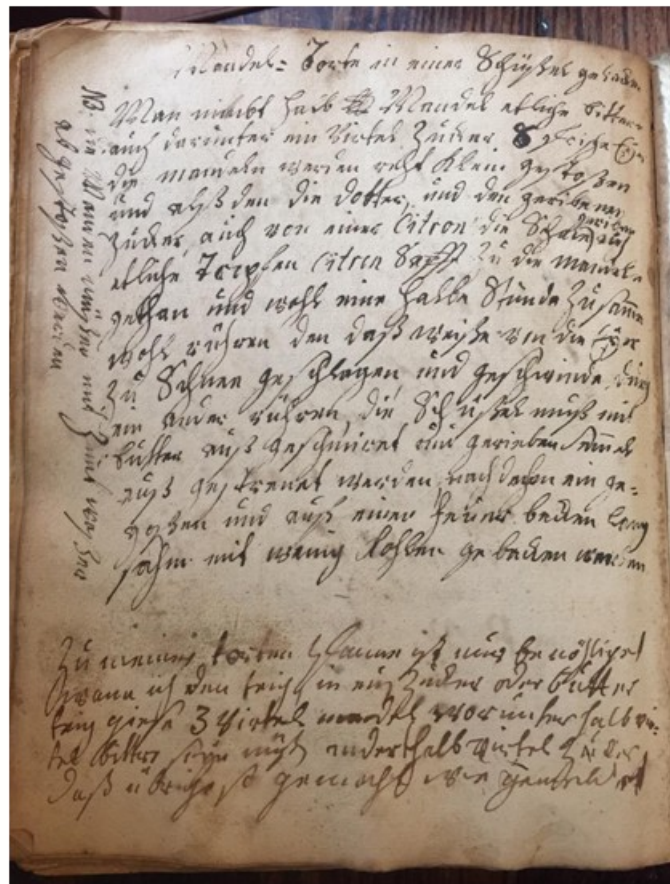 Mandel= Torte in einer Schüßel gebacken
Man nimbt halb Mandel etliche bittere
auch darunter ein Virtel Zucker, 8 frische Eyer
die mandeln werden reht klein gestoßen
und alßden die dotter, und den geribenen
Zucker, auch von einer Citron die Schale gerieben
etliche Tropfen Citron Safft zu die mandeln
gethan und wohl eine halbe Stunde zusamen
wohl rühren den daß weiße von die Eyer
zu Schnee geschlagen und geschwinde durch
ein ander rühren, die Schüßel muß mit
butter auß geschmiret und gerieben Semel
auß gestreuet werden nachdehm ein ge=
goßen und auf einer feuer becken lang
sahm mit wenig Kohlen gebacken werden
NB. die Mandeln müßen mit
abgestoßen werden
Zu meiner torten pfanne ist nur benöhtiget
wann ich den teich in ein Zucker oder butter
teig gieße 3 Virtel mandel worunter halb vir=
tel bitter seyn muß anderthalb virtel Zucker
daß übrige ist gemacht wie gemeldet